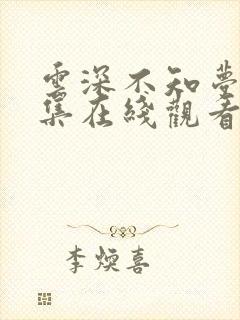 雲深不知夢
集在綫觀看
李煐喜